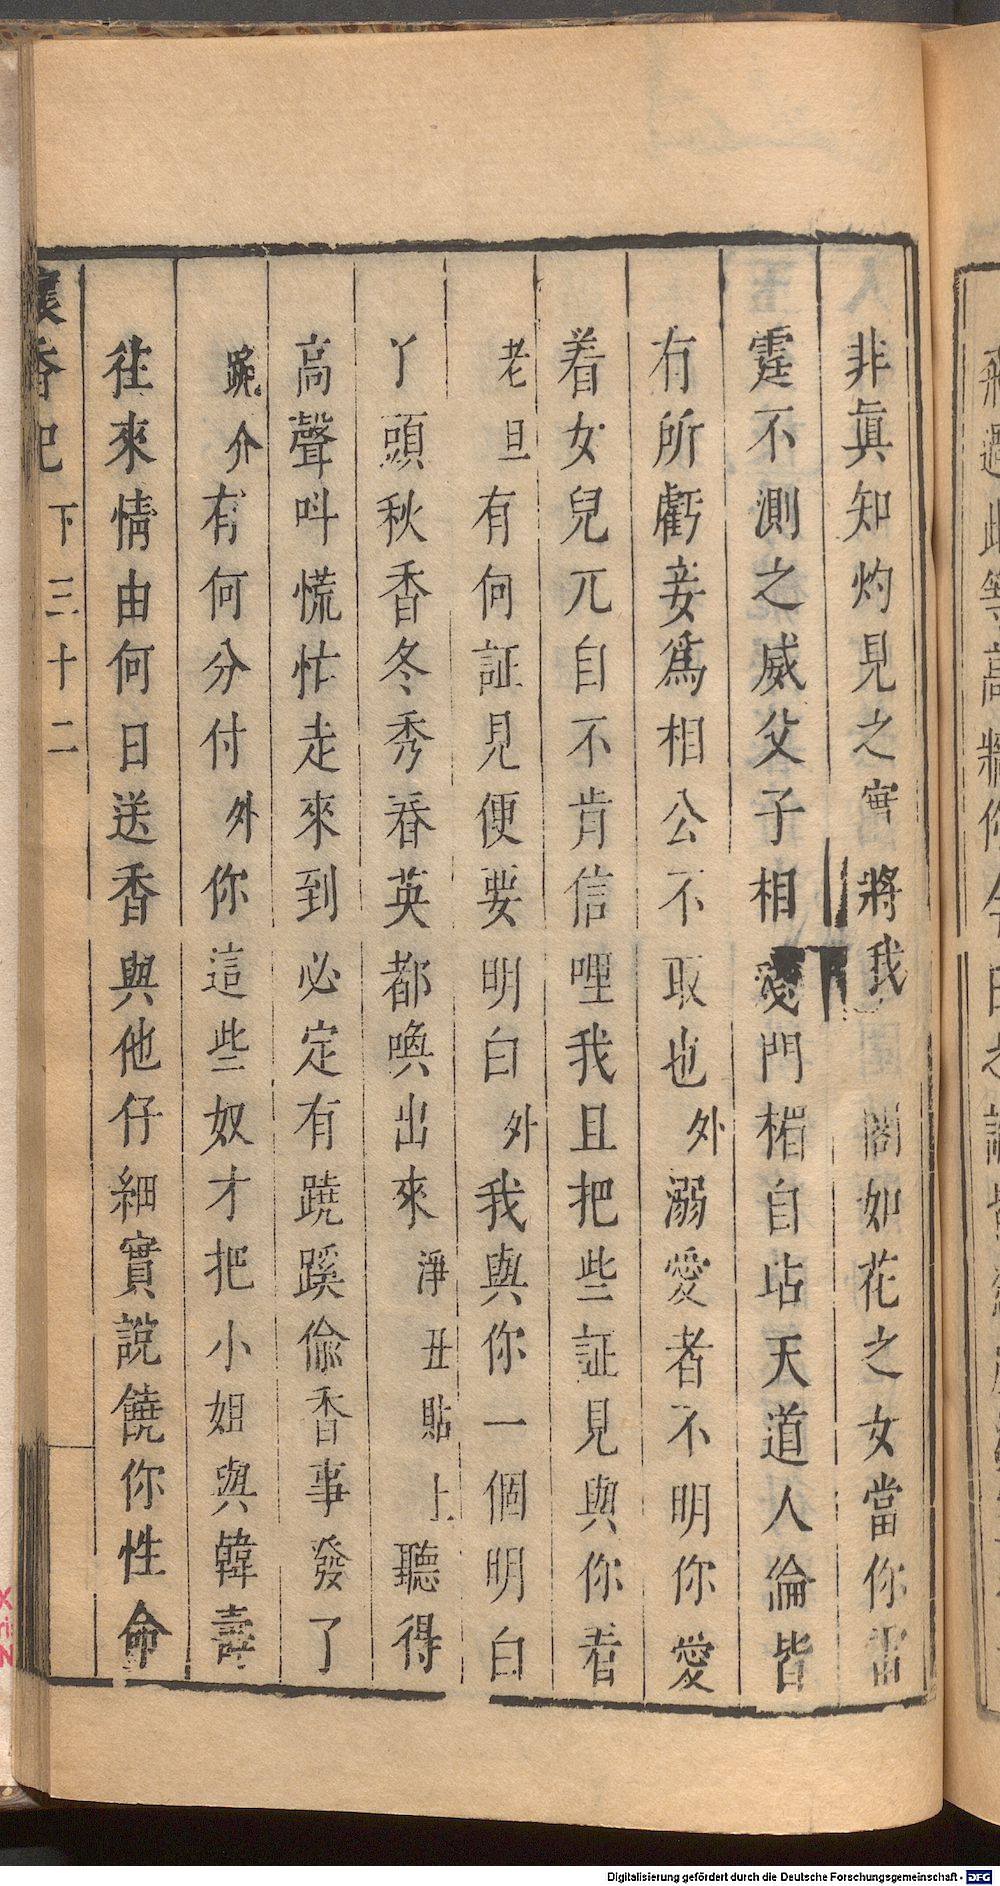 非眞知灼見之實將我閨閤如花之女當你雷
霆不測之威父子相愛門楣自玷天道人倫皆
有所虧妾爲相公不取也外溺愛者不明你愛
着女兒兀自不肯信哩我且把些証見與你看
老旦有何証見便要明白外我與你一個明白
丫頭秋香冬秀春英都喚出來淨丑貼上聽得
高聲呌慌忙走來到必定有蹺蹊偷香事發了
跪介有何分付外你這些奴才把小姐與韓壽
往來情由何日送香與他仔細實說饒你性命
懷香記 下 三十二
Digitalisierung gefördert durch die Deutsche Forschungsgemeinschaft - DFG